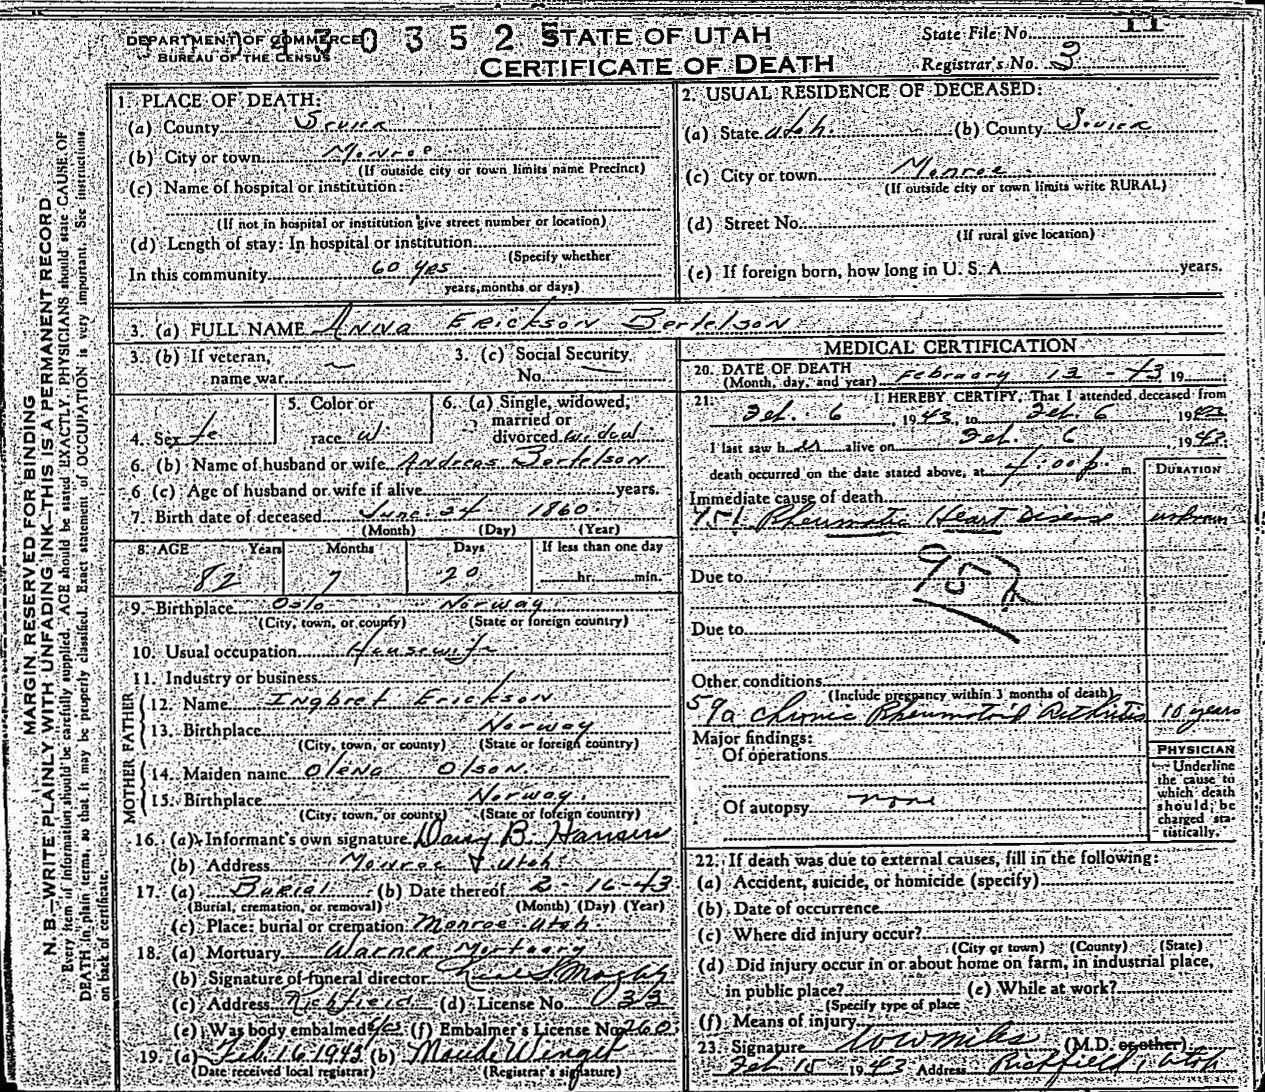 DEPARTMENT OF COMMERCE
BUREAU OF THE CENSUS
STATE OF UTAH
CERTIFICATE OF DEATH
State File No. 11
Registrar's No. 3
MARGIN RESERVED FOR BINDING
N. B.—WRITE PLAINLY WITH UNFADING INK—THIS IS A PERMANENT RECORD
Every item of information should be carefully supplied. AGE should be stated EXACTLY. PHYSICIANS should state CAUSE OF
DEATH in plain terms, so that it may be properly classified. Exact statement of OCCUPATION is very important. See instructions
on back of certificate.
1. PLACE OF DEATH:
(a) County Sevier
(b) City or town Monroe
(If outside city or town limits name Precinct)
(c) Name of hospital or institution:
(If not in hospital or institution give street number or location)
(d) Length of stay: In hospital or institution
(Specify whether
In this community 60 yrs
years, months or days)
2. USUAL RESIDENCE OF DECEASED:
(a) State Utah. (b) County Sevier
(c) City or town Monroe
(If outside city or town limits write RURAL)
(d) Street No.
(If rural give location)
(e) If foreign born, how long in U. S. A. years.
3. (a) FULL NAME Anna Erickson Bertelson
3. (b) If veteran,
name war
3. (c) Social Security
No.
4. Sex fe
5. Color or
race w.
6. (a) Single, widowed,
married or
divorced widow
6. (b) Name of husband or wife Andreas Bertelson
6 (c) Age of husband or wife if alive years.
7. Birth date of deceased June 24 1860
(Month) (Day) (Year)
8. AGE Years Months Days If less than one day
82 7 20 hr. min.
9. Birthplace Oslo Norway
(City, town, or county) (State or foreign country)
10. Usual occupation Housewife
11. Industry or business
FATHER
12. Name Ingbret Erickson
13. Birthplace Norway
(City, town, or county) (State or foreign country)
MOTHER
14. Maiden name Olena Olson
15. Birthplace Norway
(City, town, or county) (State or foreign country)
16. (a) Informant's own signature B. Hansen
(b) Address Monroe Utah
17. (a) Burial (b) Date thereof 2-16-43
(Burial, cremation, or removal) (Month) (Day) (Year)
(c) Place: burial or cremation Monroe Utah
18. (a) Mortuary Warner Mortuary
(b) Signature of funeral director
(c) Address Richfield (d) License No. 
(e) Was body embalmed yes (f) Embalmer's License No. 260
19. (a) Feb. 16 1943 (b) Maude Winget
(Date received local registrar) (Registrar's signature)
MEDICAL CERTIFICATION
20. DATE OF DEATH
(Month, day, and year) February 13 - 43 19
21. I HEREBY CERTIFY, That I attended deceased from
Feb. 6, 1943, to Feb. 6 1943
I last saw her alive on Feb. 6 1943
death occurred on the date stated above, at 4:00 p. m.
DURATION
Immediate cause of death
Rheumatic Heart Disease unknown
Due to
Due to
Other conditions
(Include pregnancy within 3 months of death)
59a Chronic Rheumatoid Arthritis 10 years
Major findings:
Of operations
Of autopsy none
PHYSICIAN
Underline
the cause to
which death
should be
charged sta-
tistically.
22. If death was due to external causes, fill in the following:
(a) Accident, suicide, or homicide (specify)
(b) Date of occurrence
(c) Where did injury occur?
(City or town) (County) (State)
(d) Did injury occur in or about home on farm, in industrial place,
in public place? (e) While at work?
(Specify type of place
(f) Means of injury
23. Signature (M.D. or other)
Feb 15 1943 Address Richfield, Utah